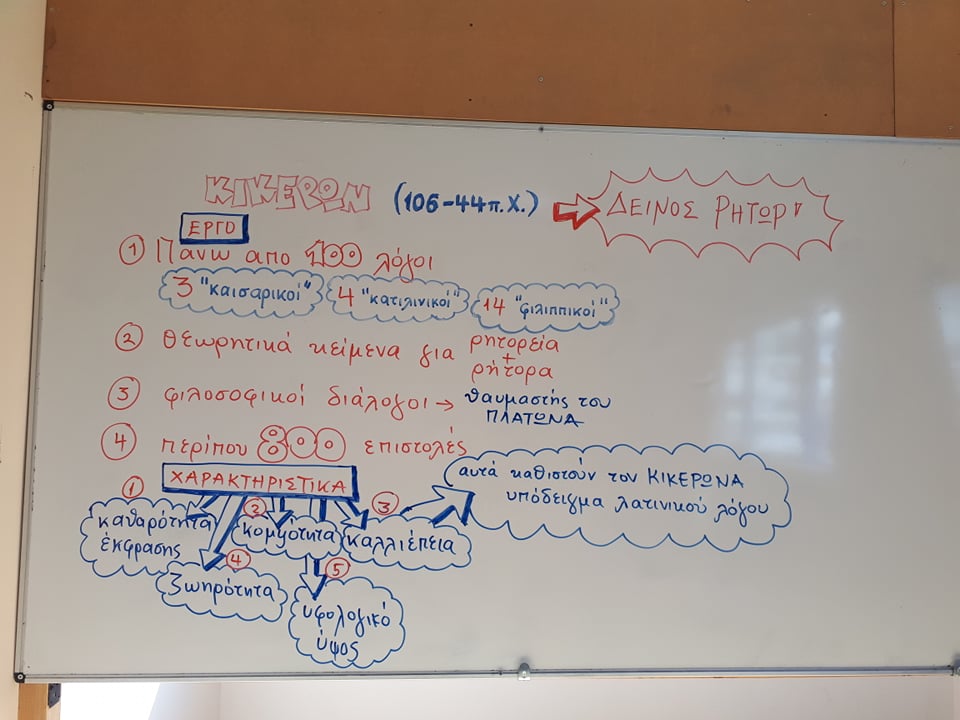 ΚΙΚΕΡΩΝ (106-44π.Χ.) ΔΕΙΝΟΣ ΡΗΤΩΡ
ΕΡΓΟ
1 Πανω απο 100 λόγοι
3 "καισαρικοί" 4 "κατιλινικοί" 14 "φιλιππικοί"
2 θεωρητικά κείμενα για ρητορεία
+
ρήτορα
3 φιλοσοφικοί διάλογοι → θαυμαστής του
ΠΛΑΤΩΝΑ
4 περίπου 800 επιστολές
ΧΑΡΑΚΤΗΡΙΣΤΙΚΑ
αυτά καθιστούν τον ΚΙΚΕΡΩΝΑ
υπόδειγμα λατινικού λόγου
1 καθαρότητα
έκφρασης
2 κομψότητα
3 καλλιέπεια
4 ζωηρότητα
5 υφολογικό
ύψος